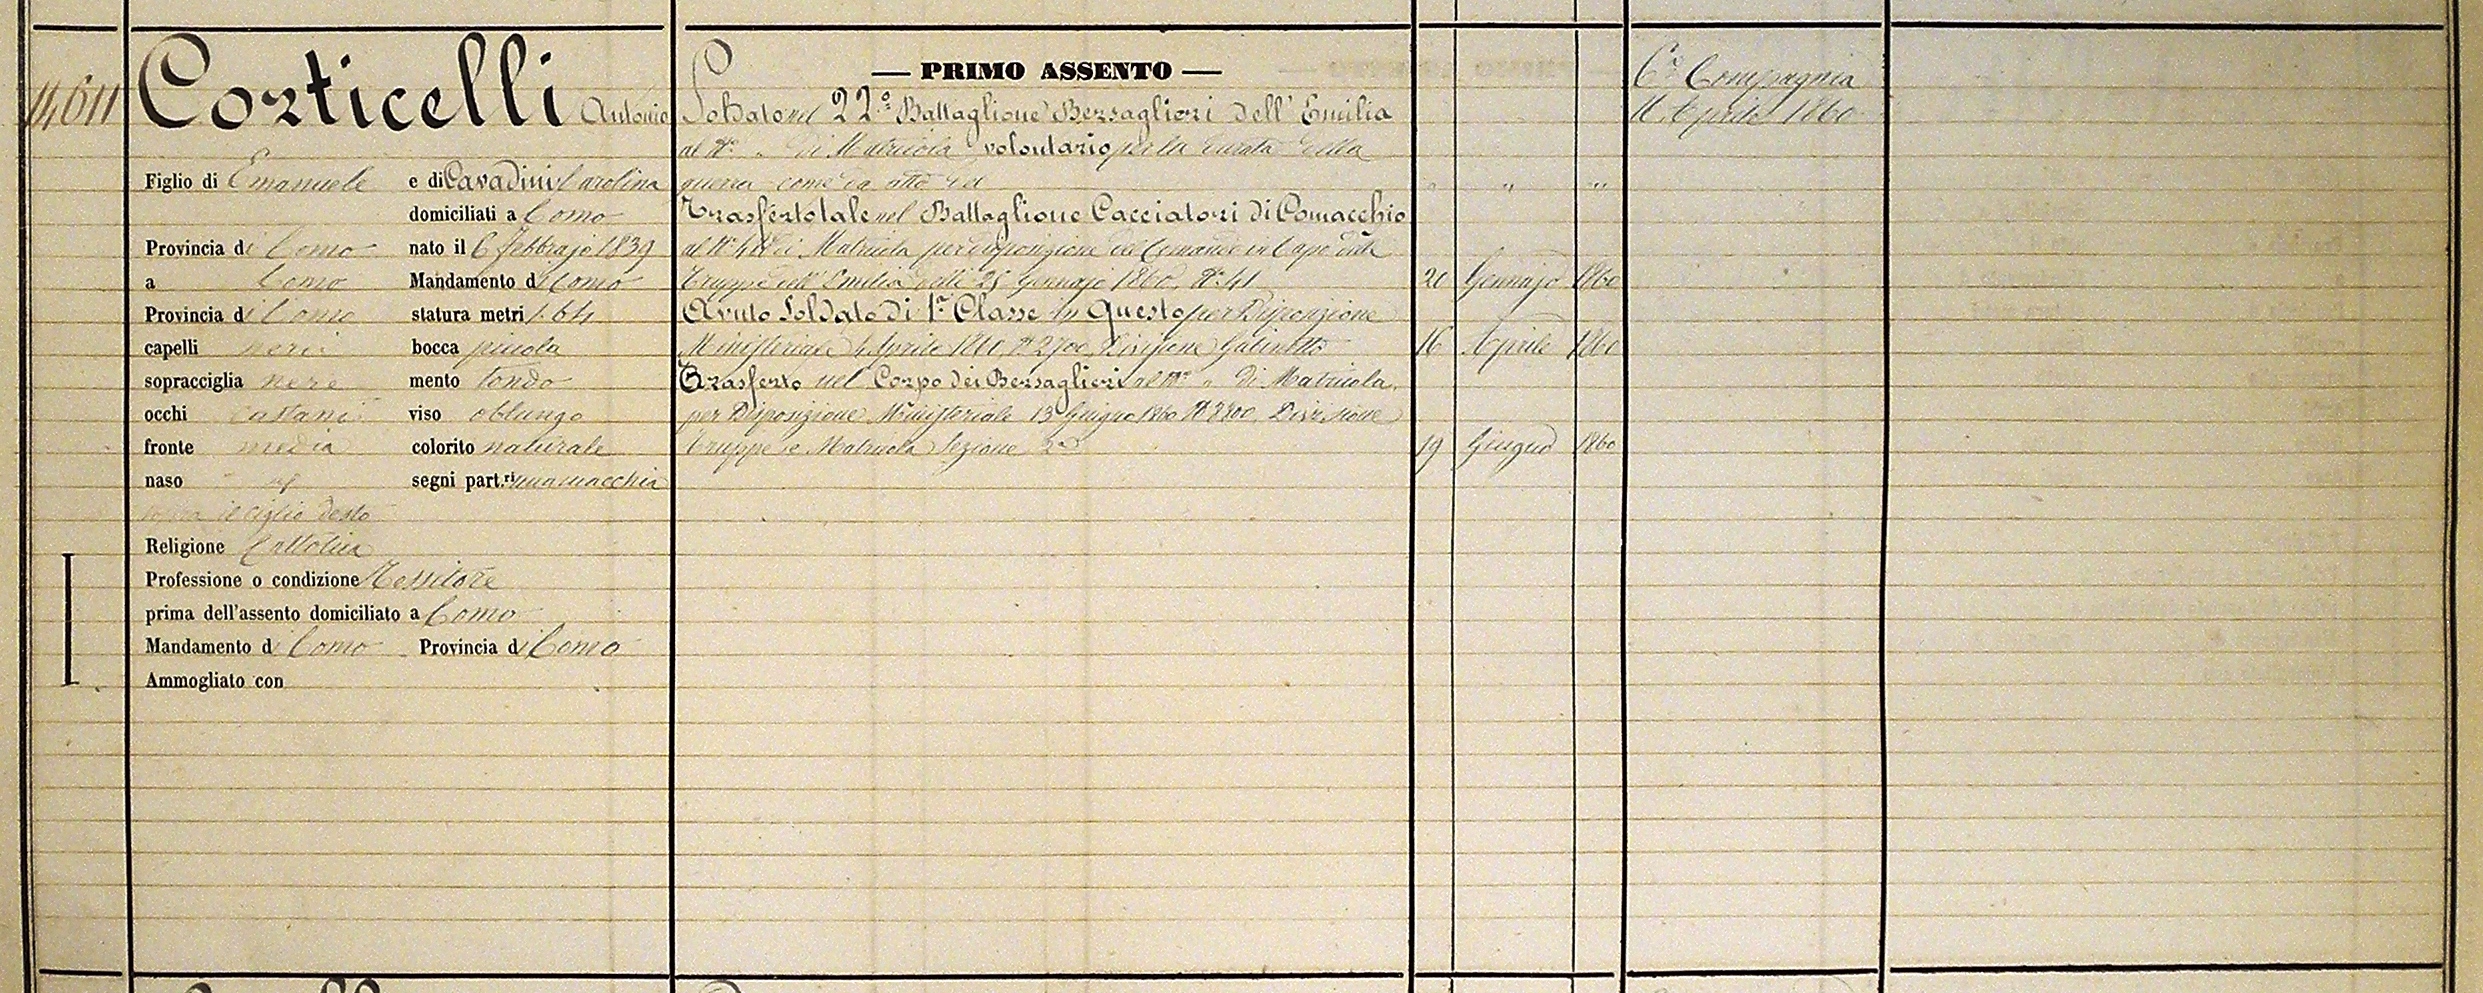 14611
Corticelli Antonio
Figlio di Emanuele e di Cavadini Carolina
domiciliati a Como
Provincia di Como nato il 6 febbrajo 1839
a Como Mandamento di Como
Provincia di Como statura metri 1.64
capelli neri bocca piccola
sopracciglia nere mento tondo
occhi castani viso oblungo
fronte media colorito naturale
naso segni part.ri una macchia
sopra il ciglio desto
Religione Cattolica
Professione o condizione Tessitore
prima dell'assento domiciliato a Como
Mandamento di Como Provincia di Como
Ammogliato con
— PRIMO ASSENTO —
Soldato nel 22º Battaglione Bersaglieri dell'Emilia
al Nº " di Matricola volontario per la durata della
guerra come da atto del " " "
Trasferto tale nel Battaglione Cacciatori di Comacchio
al Nº di Matricola per disposizione del Comando in Capo delle
Truppe dell'Emilia delli 25 Gennajo 1860, Nº 41 Gennajo 1860
Avuto Soldato di 1ª Classe in Questo per Disposizione
Ministeriale 4 Aprile 1860, Nº 2700, Divisione Gabinetto 16 Aprile 1860
Trasferto nel Corpo dei Bersaglieri al Nº " di Matricola,
per Disposizione Ministeriale 13 Giugno 1860 Nº Divisione
Truppe e Matricola Sezione 2ª 19 Giugno 1860
6ª Compagnia
16 Aprile 1860